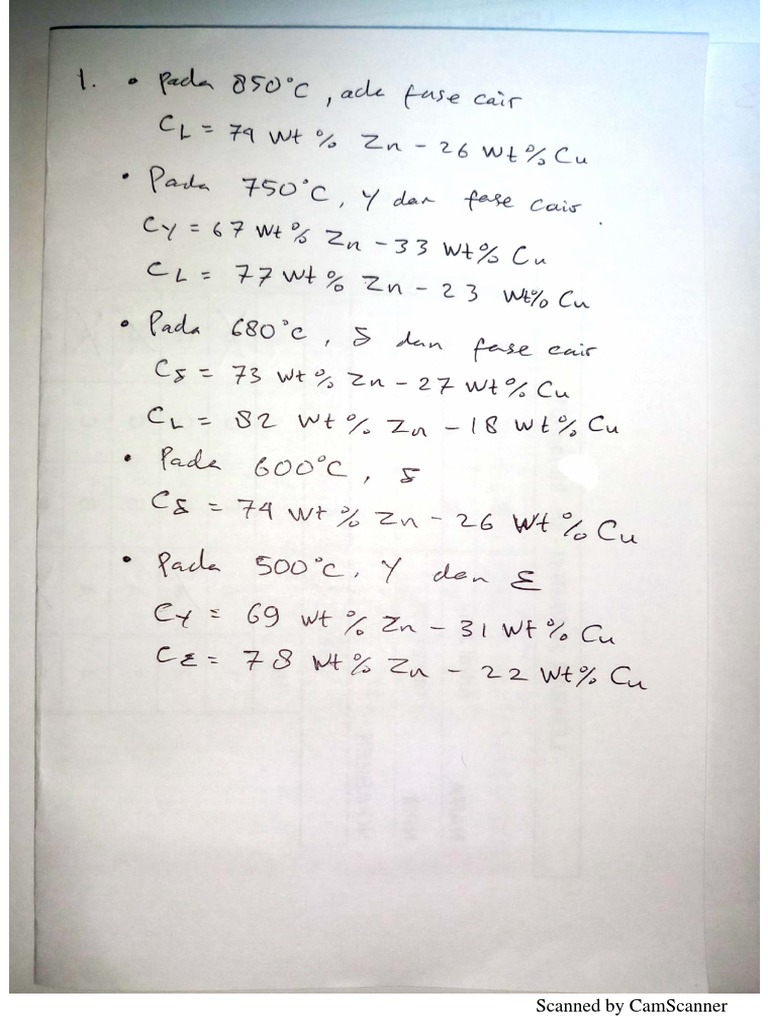 1. • Pada 850°C, ada fase cair
CL = 74 wt % Zn - 26 wt % Cu
• Pada 750°C, γ dan fase cair.
Cγ = 67 wt % Zn - 33 wt % Cu
CL = 77 wt % Zn - 23 wt% Cu
• Pada 680°C, δ dan fase cair
Cδ = 73 wt % Zn - 27 wt % Cu
CL = 82 wt % Zn - 18 wt % Cu
• Pada 600°C, δ
Cδ = 74 wt % Zn - 26 wt % Cu
• Pada 500°C, γ dan ε
Cγ = 69 wt % Zn - 31 wt % Cu
Cε = 78 wt % Zn - 22 wt % Cu
Scanned by CamScanner